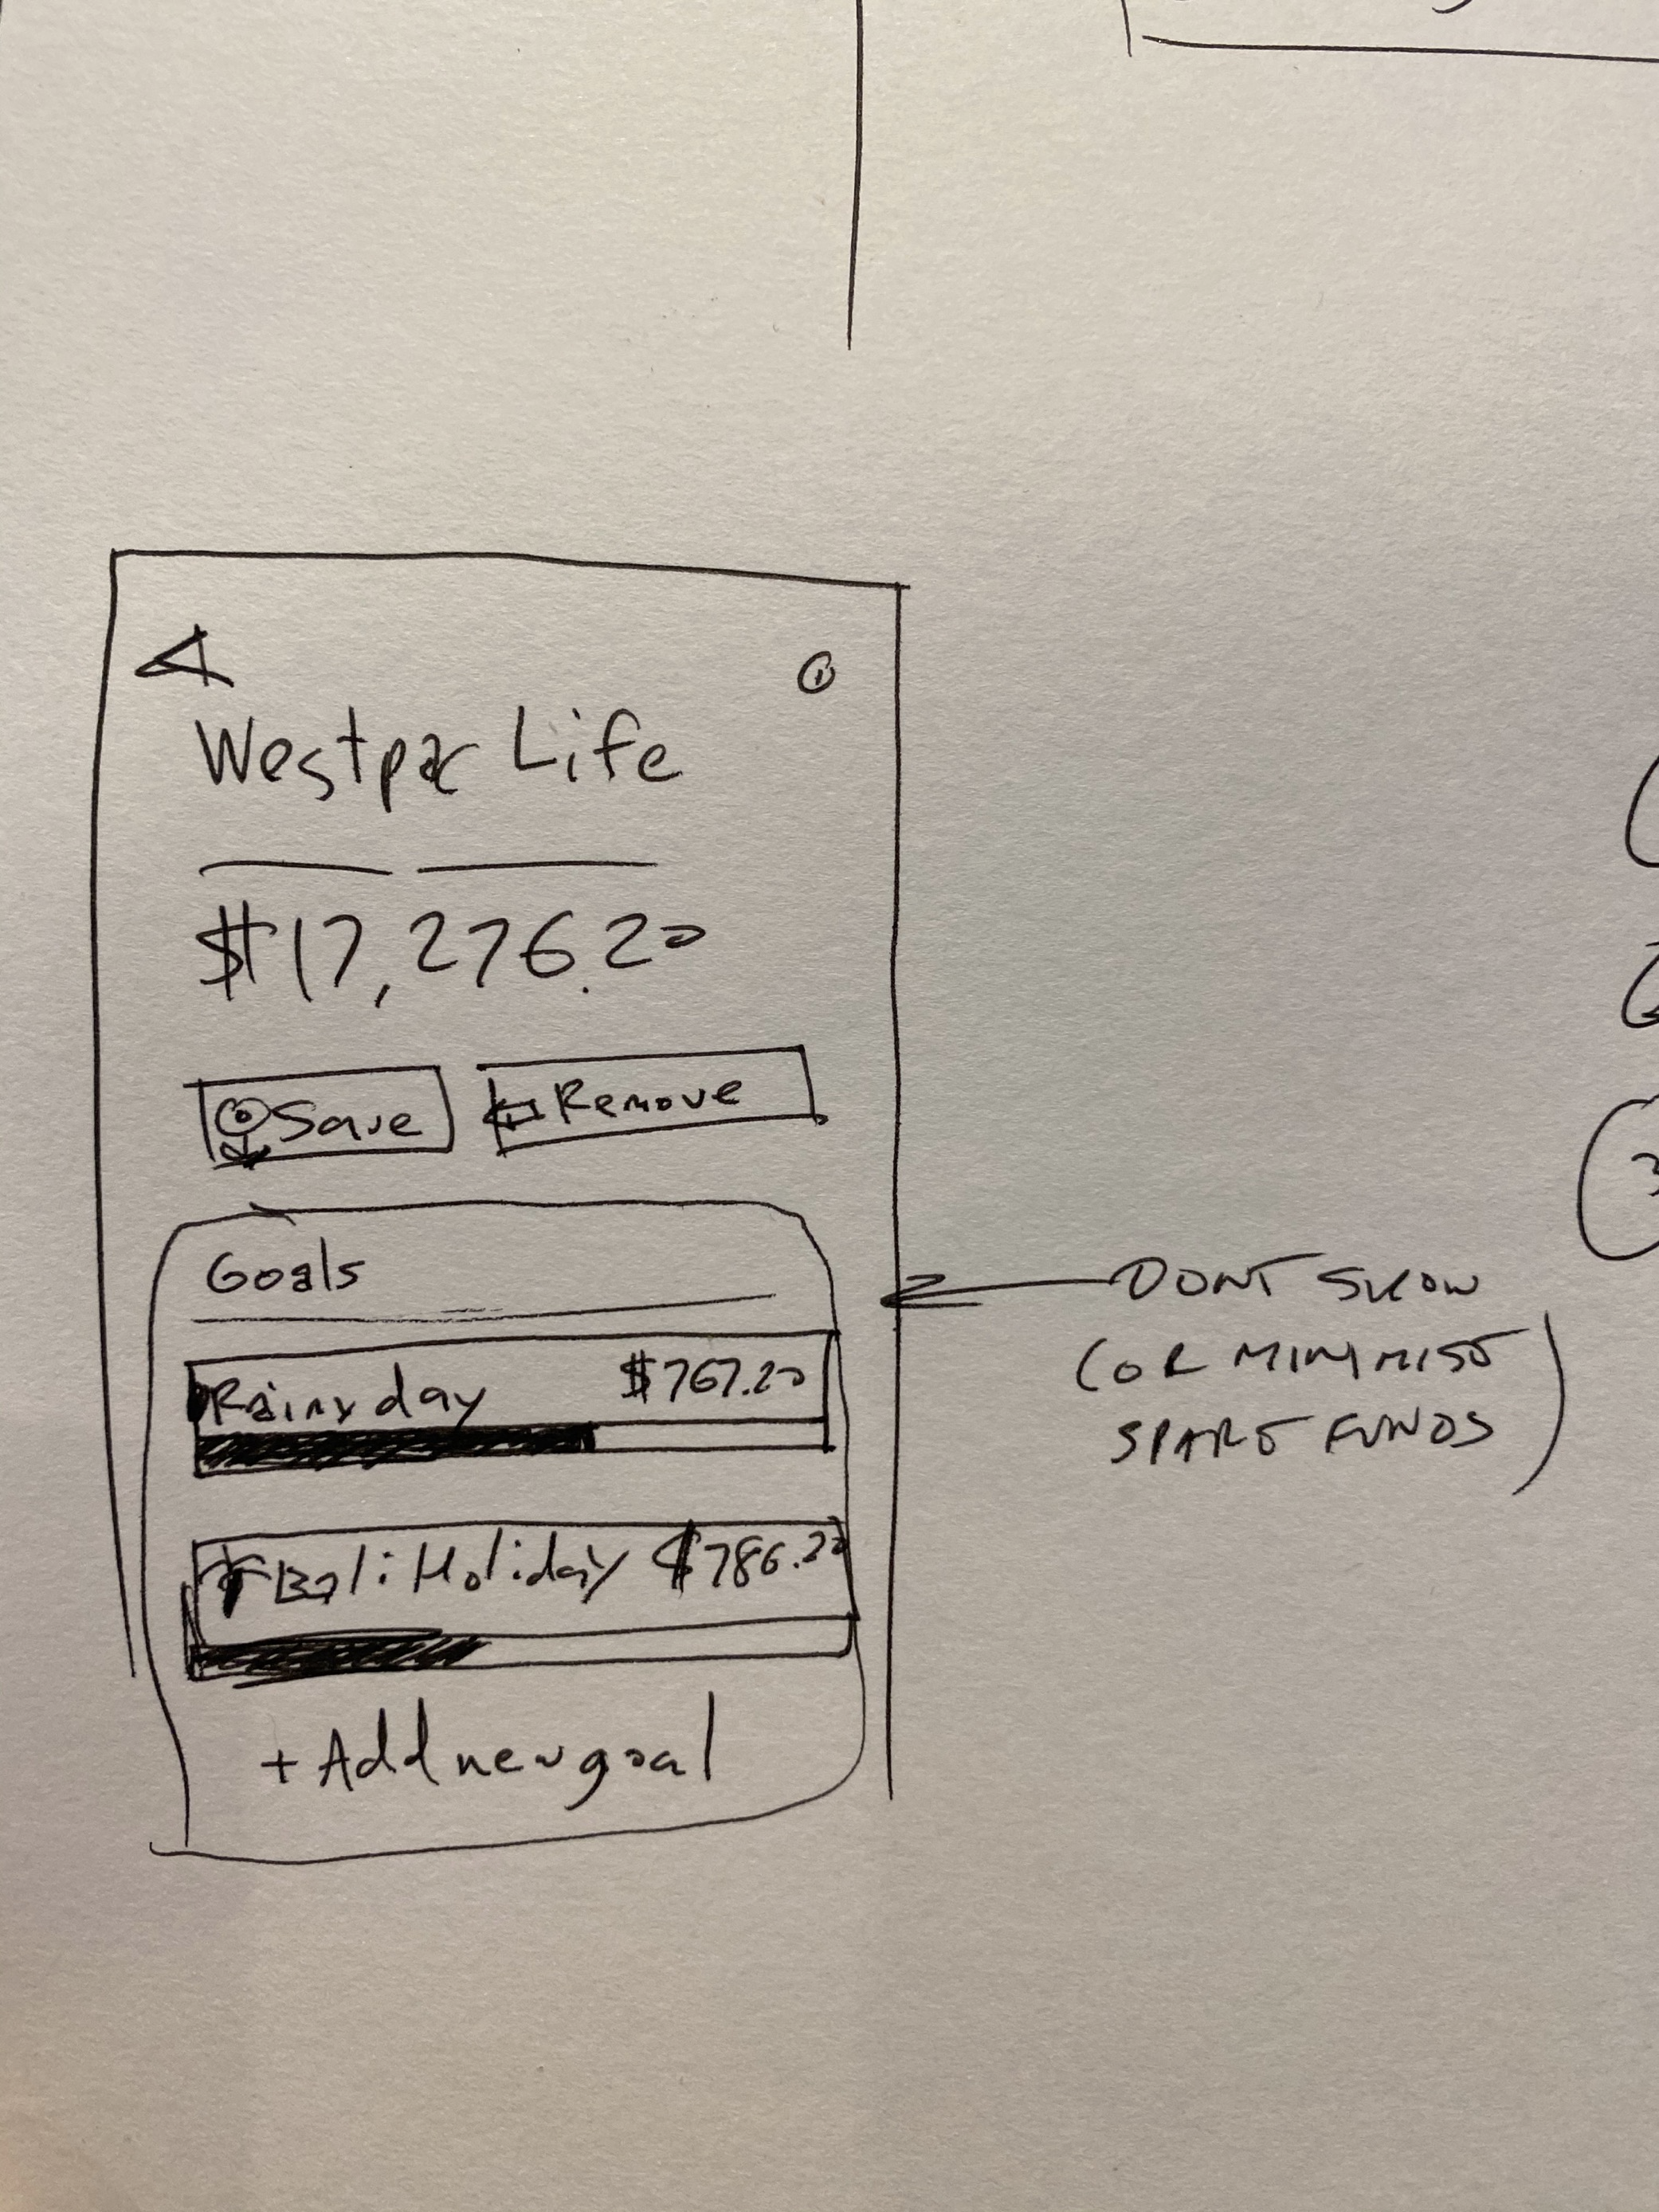 Westpac Life
$17,276.20
Save
Remove
Goals
Rainy day $767.20
Bali Holiday $786.20
+ Add new goal
DONT SHOW
(OR MINIMISE
SPARE FUNDS)